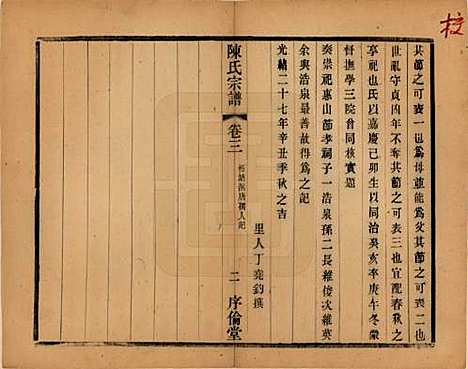 其節之可表一也母並能為父其節之可表二也
世亂守貞凶年不奪其節之可表三也宜配春秋之
享祀也氏以嘉慶己卯生以同治癸亥卒庚午冬蒙
督撫學三院會同核實題
奏崇祀惠山節孝祠子一浩泉孫二長維俊次維英
余與浩泉最善故得為之記
光緒二十七年辛丑季秋之吉
里人丁堯鈞撰
陳氏宗譜
卷三
二
序倫堂
校